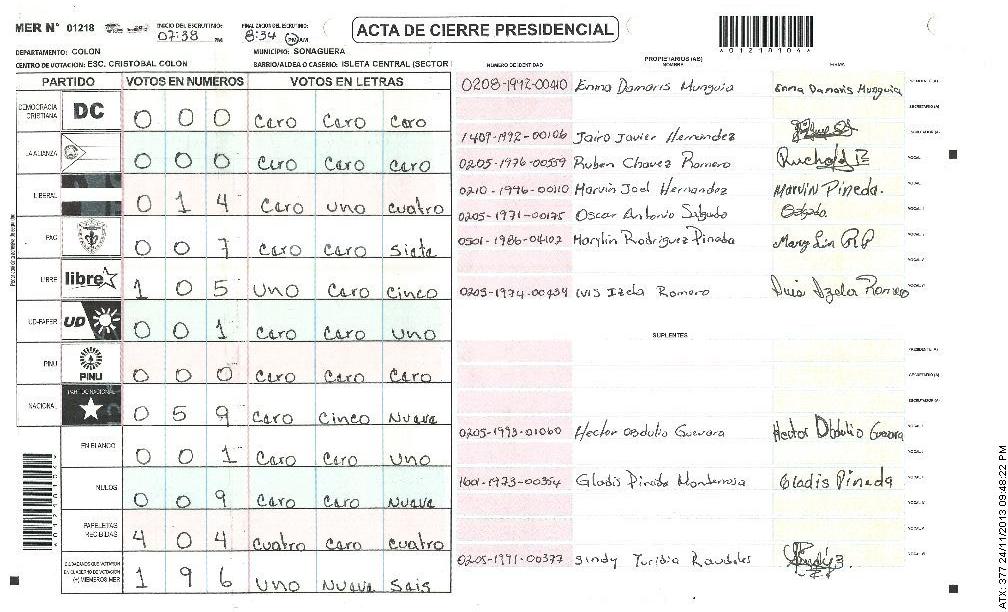 MER N° 01218 INICIO DEL ESCRUTINIO: 07:38 PM FINALIZACION DEL ESCRUTINIO: 8:34 PM AM ACTA DE CIERRE PRESIDENCIAL
A01218104A
DEPARTAMENTO: COLON MUNICIPIO: SONAGUERA
CENTRO DE VOTACION: ESC. CRISTOBAL COLON BARRIO/ALDEA O CASERIO: ISLETA CENTRAL (SECTOR
PARTIDO VOTOS EN NUMEROS VOTOS EN LETRAS
DEMOCRACIA CRISTIANA DC 0 0 0 Cero Cero Cero
LA ALIANZA 0 0 0 Cero Cero Cero
LIBERAL 0 1 4 Cero uno cuatro
PAC 0 0 7 Cero Cero Siete
LIBRE libre 1 0 5 Uno Cero Cinco
UD-FAPER UD 0 0 1 Cero Cero Uno
PINU PINU 0 0 0 Cero Cero Cero
NACIONAL PARTIDO NACIONAL 0 5 9 Cero Cinco Nueve
EN BLANCO 0 0 1 Cero Cero Uno
NULOS 0 0 9 Cero Cero Nueve
PAPELETAS RECIBIDAS 4 0 4 Cuatro Cero Cuatro
CIUDADANOS QUE VOTARON EN CUADERNO DE VOTACION (+) MIEMBROS MER 1 9 6 Uno Nueve Seis
NUMERO DE IDENTIDAD PROPIETARIOS (AS) NOMBRE FIRMA
0208-1992-00410 Enma Damaris Munguia Enma Damaris Munguia
SECRETARIO (A)
1409-1992-00106 Jairo Javier Hernandez
0205-1976-00559 Ruben Chavez Romero
0210-1996-00110 Marvin Joel Hernandez Marvin Pineda.
0205-1971-00175 Oscar Antonio Salgado
0501-1986-04102 Marylin Rodriguez Pineda
0205-1974-00439 Ivis Izela Romero Ivis Izela Romero
SUPLENTES
PRESIDENTE (A)
SECRETARIO (A)
ESCRUTADOR (A)
0205-1993-01060 Hector Obdulio Guevara Hector Obdulio Guevara
1601-1973-00354 Gladis Pineda Monterrosa Gladis Pineda
0205-1991-00377 Sindy Yuridia Raudales
ATX: 377.24/11/2013 09:48:22 PM